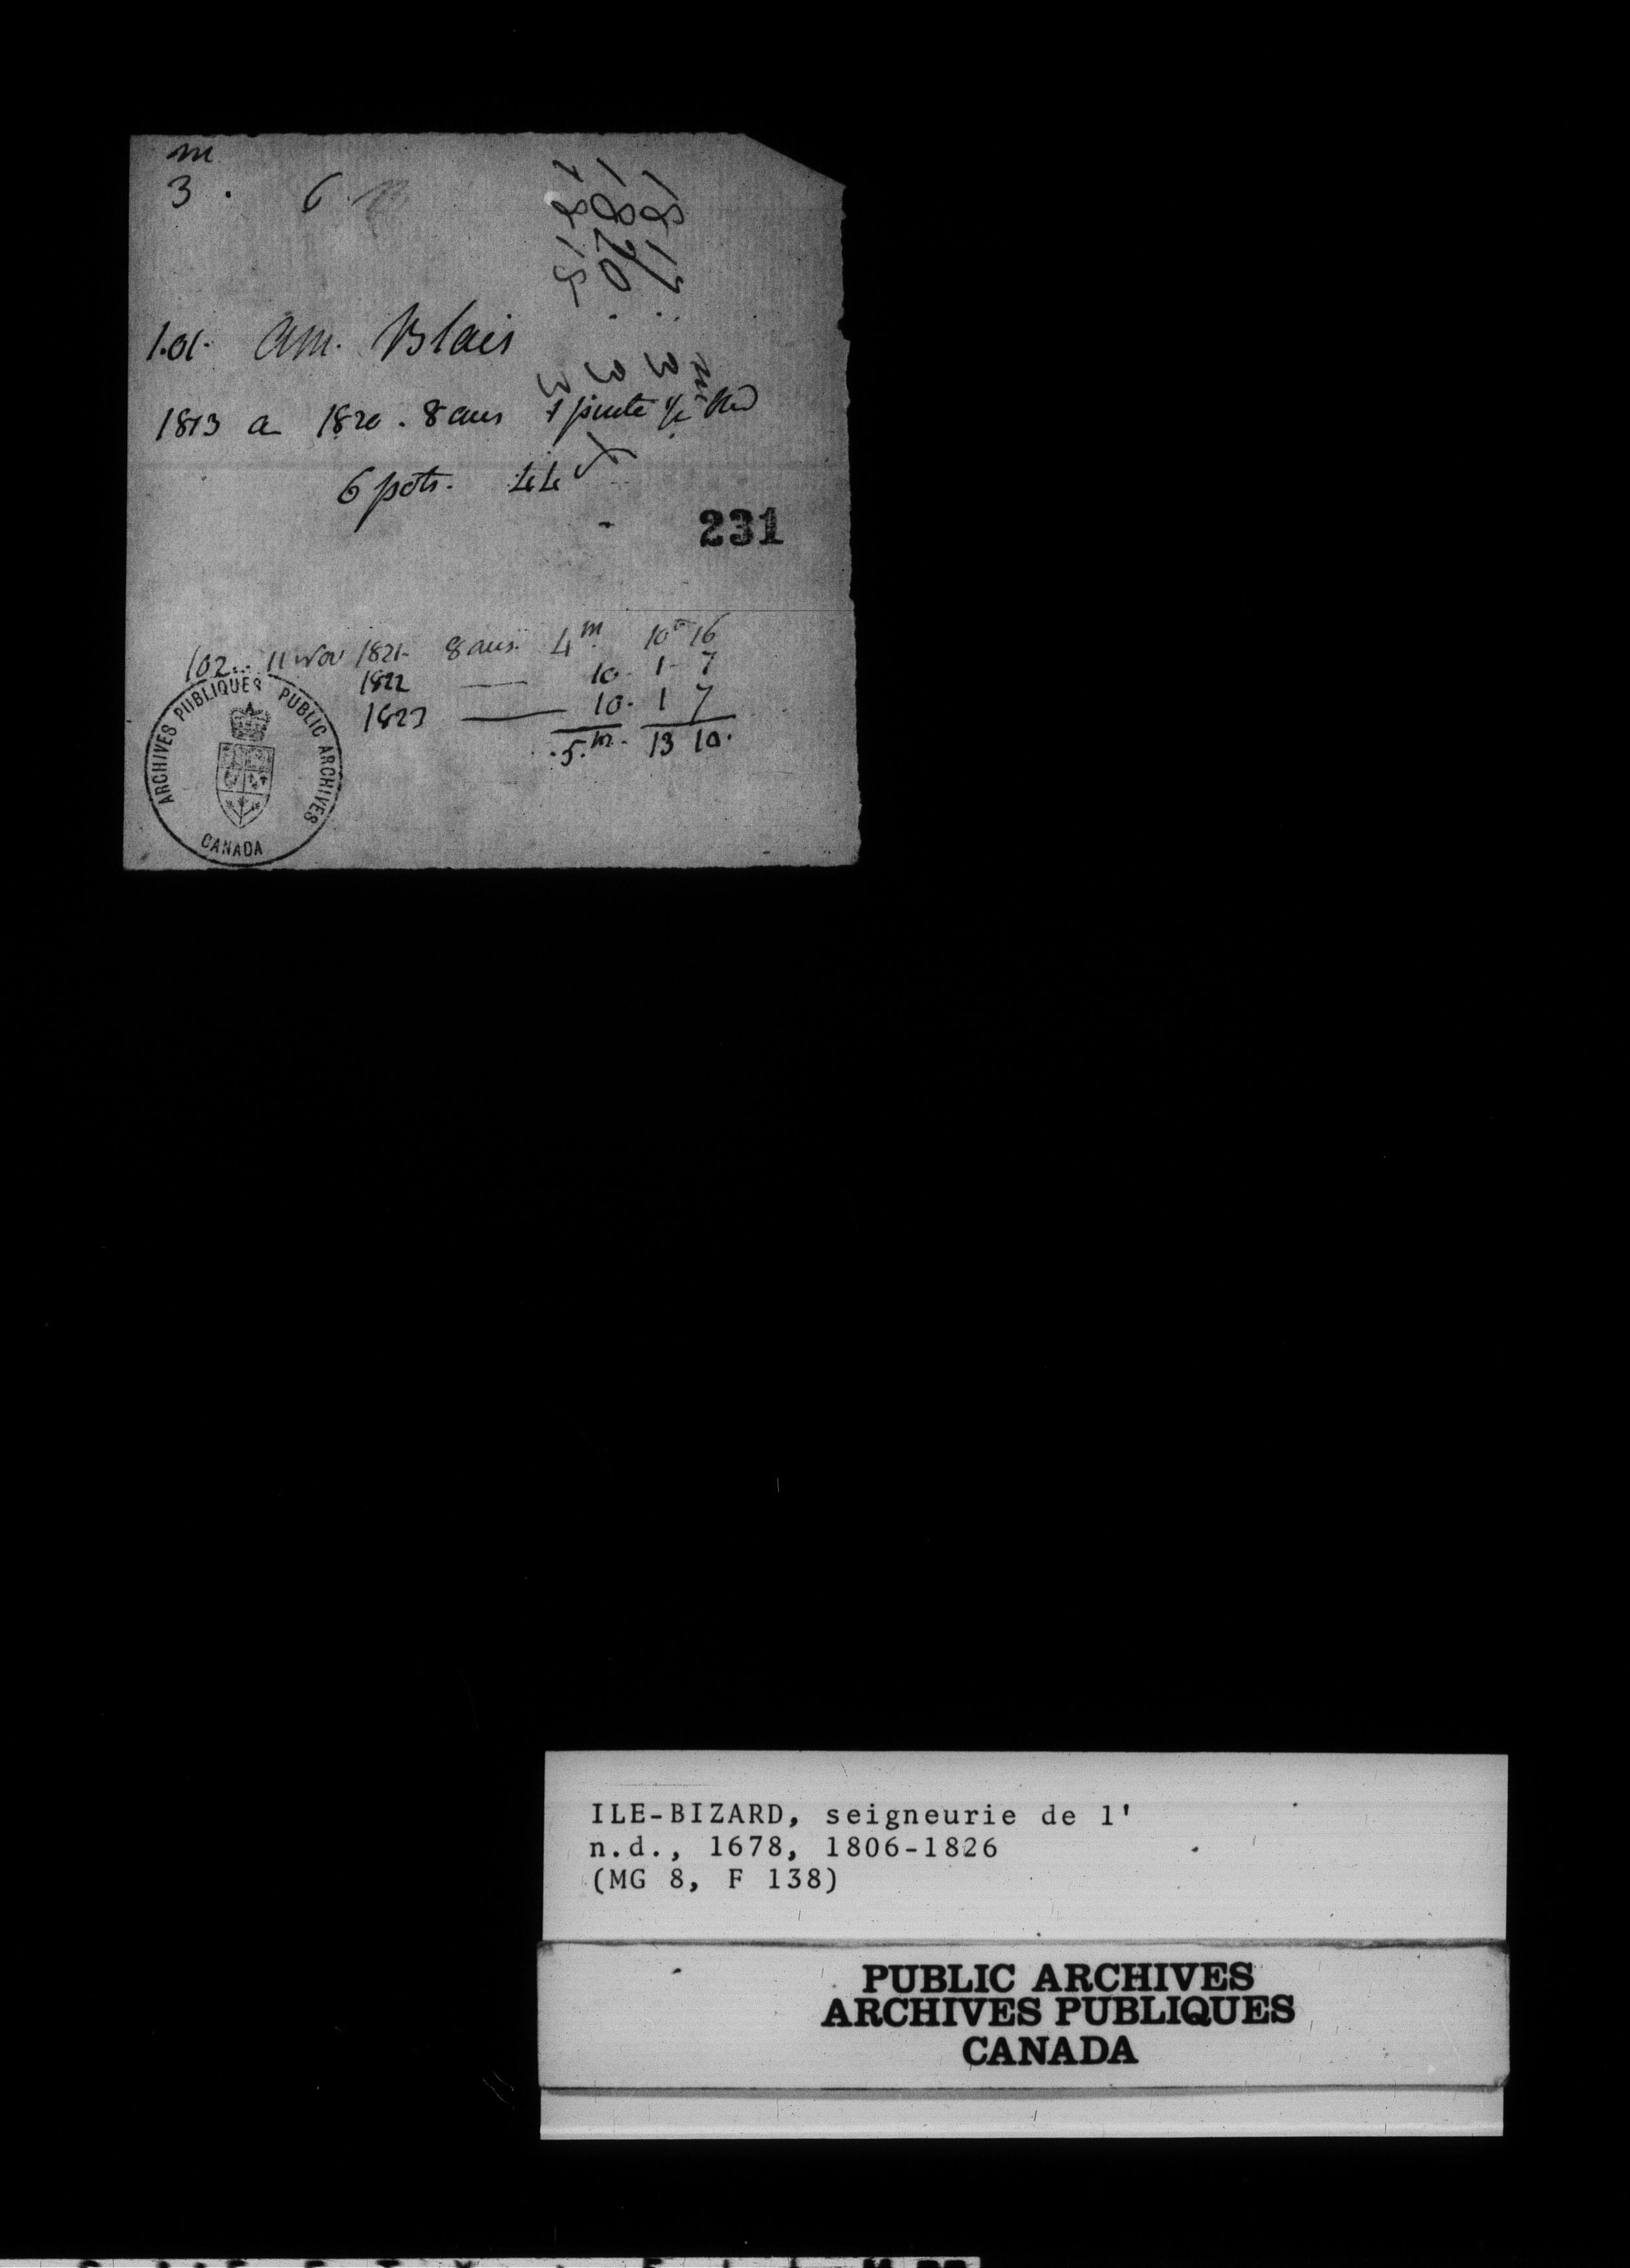 m
3 . 6
1817 .. 3
1820 . 3
1815 3
101. Am. Blais
1813 a 1820 . 8 ans 1 pinte
6 pots.
231
102.. 11 Nov 1821- 8 ans. 4m 10 16
1822 — 10. 1 7
1823 — 10. 1 7
5.m. 13 10.
ARCHIVES PUBLIQUES PUBLIC ARCHIVES
CANADA
ILE-BIZARD, seigneurie de l'
n.d., 1678, 1806-1826
(MG 8, F 138)
PUBLIC ARCHIVES
ARCHIVES PUBLIQUES
CANADA